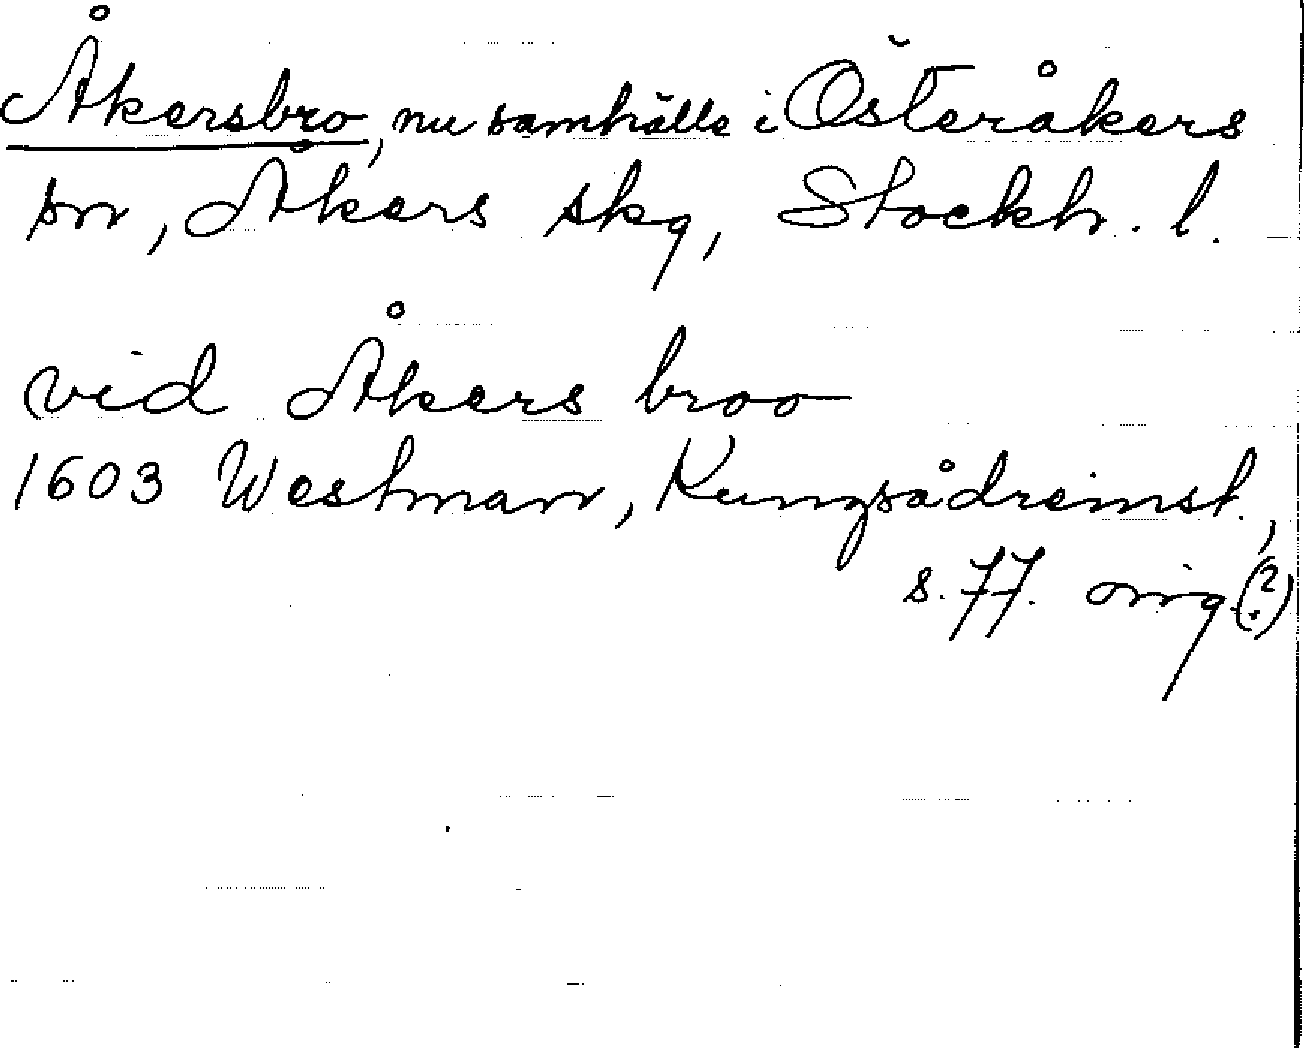 Åkersbro, nu samhälle i Österåkers
sn, Åkers skg, Stockh. l.
vid Åkers broo
1603 Westman, Kungsådreinst.,
s. 77. orig (?)